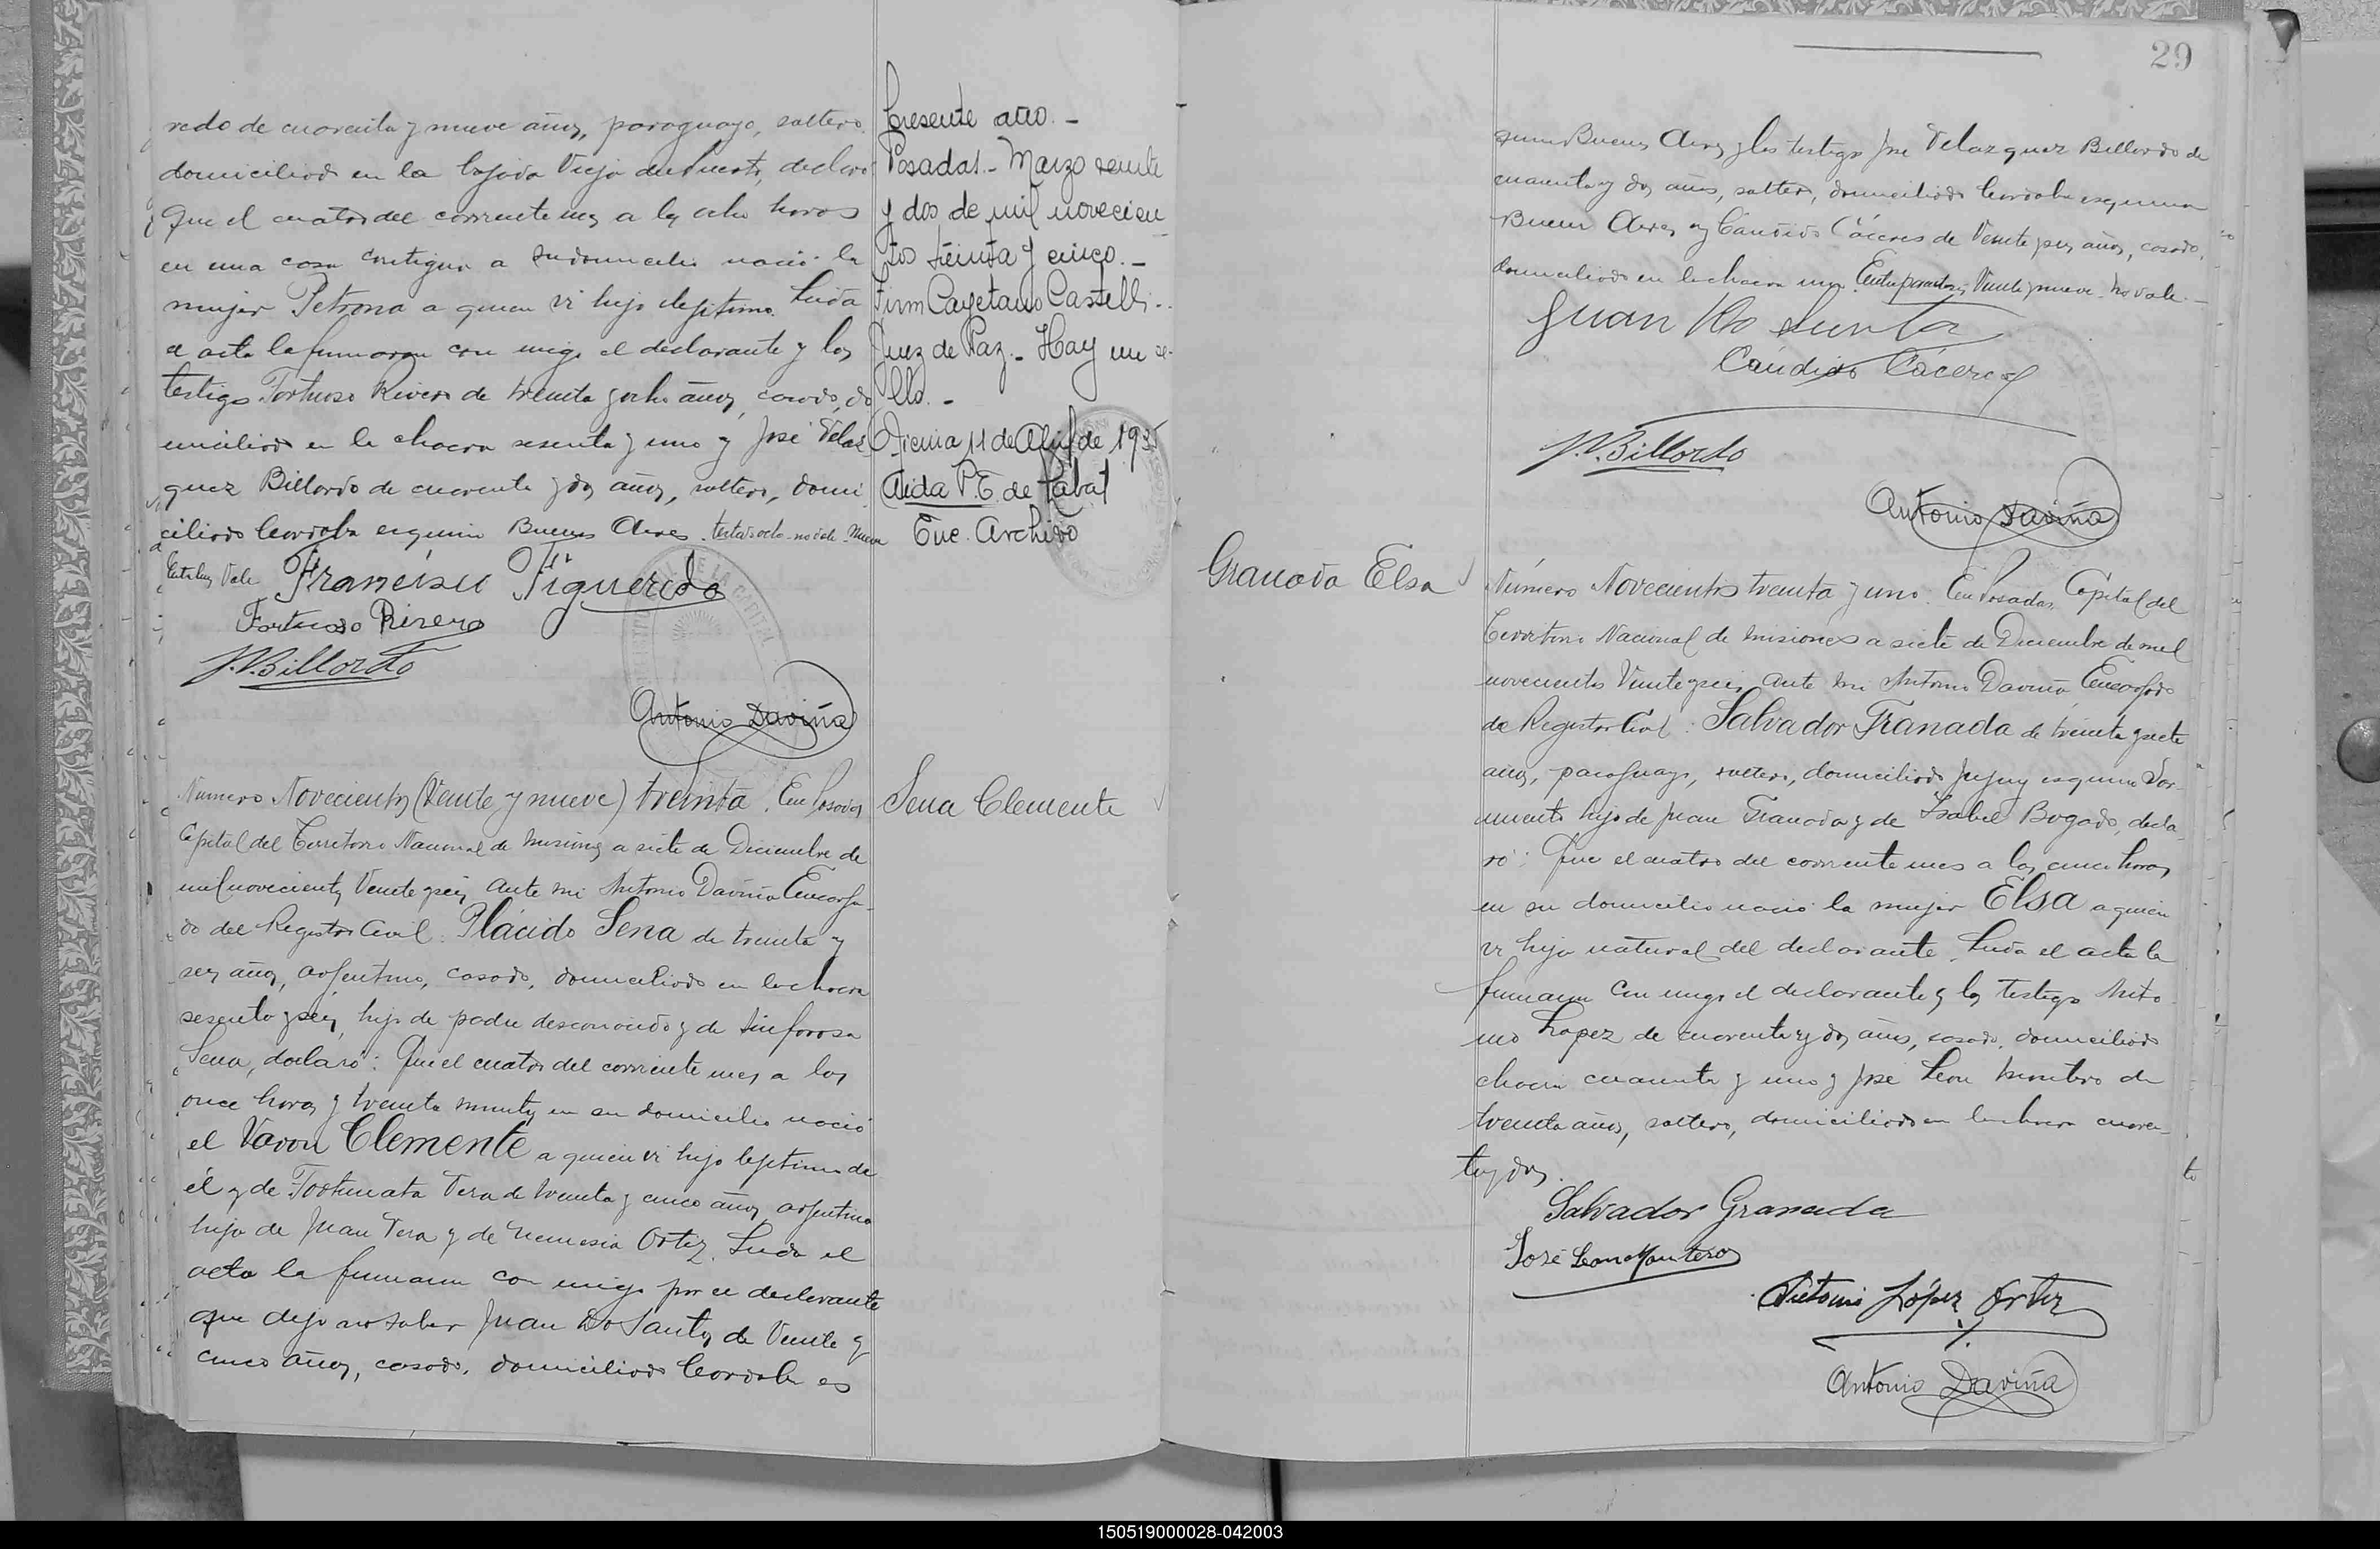 redo de cuarenta y nueve años, paraguayo, soltero,
domiciliado en la bajada Vieja del Puerto, declaró
Que el cuatro del corriente mes a las ocho horas
en una casa contigua a su domicilio nació la
mujer Petrona a quien vi hija ilejitima. Leida
el acta la firmaron con migo el declarante y los
testigos Fortuoso Rivero de treinta y ocho años, casado, do
miciliado en la chacra sesenta y uno y José Velaz
quez Billordo de cuarenta y dos años, soltero, domi
ciliado Cordoba esquina Buenos Aires. testado ocho no vale. Nueve
Vale
Francisco Figueredo
Fortuoso Rivero
J.V. Billordo
Antonio Daviña
Presente año. -
Posadas. - Marzo veinte
y dos de mil novecien
tos treinta y cinco. -
Firm Cayetano Castelli. -
Juez de Paz. - Hay un se
llo. -
11 de Abril de 1935
Aida P. T. de
Enc. Archivo
Numero Novecientos (Veinte y nueve) treinta. En Posadas
Capital del Territorio Nacional de Misiones a siete de Diciembre de
mil novecientos Veinte y seis, ante mi Antonio Daviña Encarga
do del Registro Civil: Plácido Sena de treinta y
seis años, arjentino, casado, domiciliado en la chacra
sesenta y seis, hijo de padre desconocido y de Sinforosa
Sena, declaró: Que el cuatro del corriente mes a las
once horas y treinta minutos en su domicilio nació
el Varon Clemente a quien vi hijo lejitimo de
él y de Fortunata Vera de treinta y cinco años, arjentina
hija de Juan Vera y de Nemesia Ortiz. Leida el
acta la firmaron con migo por el declarante
que dijo no saber Juan Do Santos de Veinte y
cinco años, casado, domiciliado Cordoba es
Sena Clemente
29
quina Buenos Aires y los testigos José Velazquez Billordo de
cuarenta y dos años, soltero, domiciliado Cordoba esquina
Buenos Aires y Cándido Cáceres de Veinte y seis años, casado,
domiciliado en la chacra una. Entre parentesis Veinte y nueve. No vale. -
Juan Do Santo
Cándido Cáceres
J.V. Billordo
Antonio Daviña
Granada Elsa
Número Novecientos treinta y uno. En Posadas, Capital del
Territorio Nacional de Misiones a siete de Diciembre de mil
novecientos Veinte y seis, ante mi Antonio Daviña, Encargado
de Registro Civil: Salvador Granada de treinta y siete
años, paraguayo, soltero, domiciliado Jujuy esquina Sar
miento hijo de Juan Granada y de Isabel Bogado, decla
ró: Que el cuatro del corriente mes a las cinco horas
en su domicilio nació la mujer Elsa a quien
vi hija natural del declarante. Leida el acta la
firmaron con migo el declarante y los testigos Anto
nio Lopez de cuarenta y dos años, casado, domiciliado
chacra cuarenta y uno y José Leon Montero de
treinta años, soltero, domiciliado en la chacra cuaren
ta y dos.
Salvador Granada
José Leon Montero
Antonio López Ortiz
Antonio Daviña